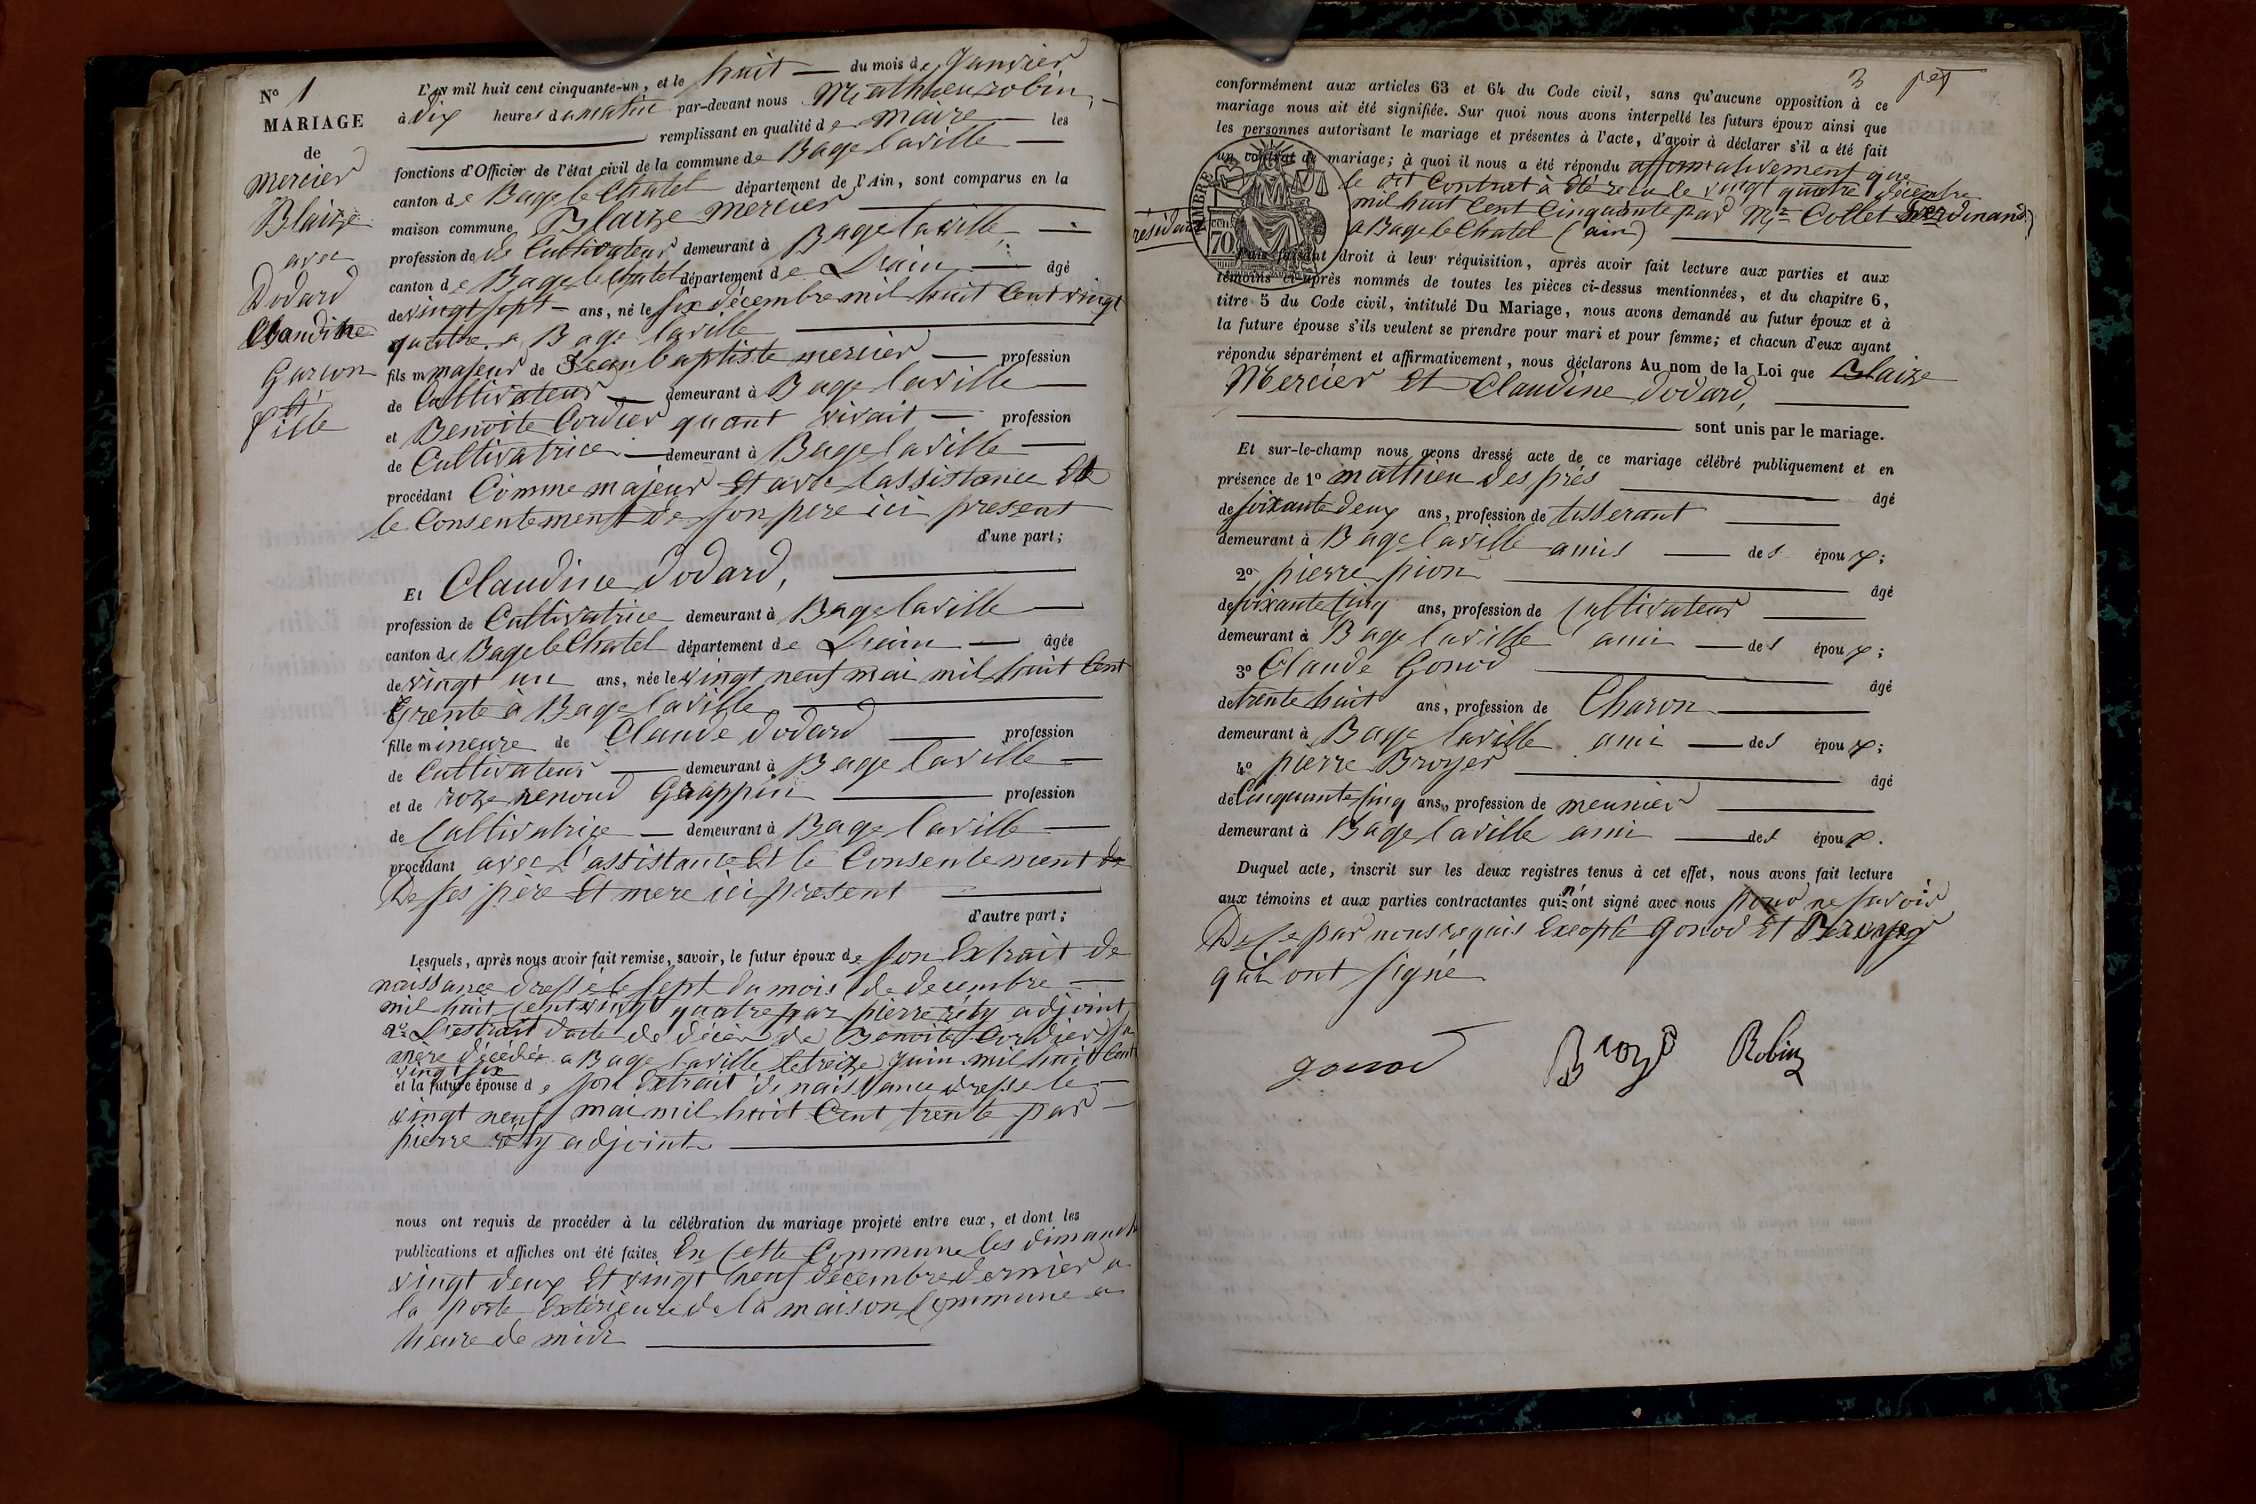 N° 1
MARIAGE
de
Mercier
Blaize
avec
Dodard
Claudine
Garcon
et
fille
L'an mil huit cent cinquante-un, et le huit du mois de Janvier
à dix heures du matin par-devant nous Mathieu robin,
remplissant en qualité de maire les
fonctions d'Officier de l'état civil de la commune de Bage laville
canton de Bage le Chatel département de l'Ain, sont comparus en la
maison commune Blaize Mercier
profession de de Cultivateur demeurant à Bage laville
canton de Bage le Chatel département de Lain âgé
de vingt sept ans, né le six décembre mil huit Cent vingt
quatre a Bage laville
fils m majeur de Jean baptiste mercier profession
de Cultivateur demeurant à Bage laville
et Benoite Cordier quant vivait profession
de Cultivatrice demeurant à Bage laville
procédant Comme majeur Et avec lassistance Et
le Consentement de son pere ici present
d'une part;
Et Claudine dodard,
profession de Cultivatrice demeurant à Bage laville
canton de Bage le Chatel département de Lain âgée
de vingt un ans, née le vingt neuf mai mil huit Cent
trente à Bage laville
fille mineure de Claude dodard profession
de Cultivateur demeurant à Bage laville
et de roze renoud Grappin profession
de Cultivatrice demeurant à Bage laville
procédant avec l'assistance Et le Consentement de
De ses père Et mere ici present
d'autre part;
Lesquels, après nous avoir fait remise, savoir, le futur époux de son Extrait de
naissance dressé le sept du mois de decembre
mil huit Cent vingt quatre par pierre réty adjoint
2° L'extrait d'acte de décès de Benoite Cordier sa
mère décédée a Bage laville le treize Juin mil huit Cent
vingt six
et la future épouse de son Extrait de naissance dresse le
vingt neuf mai mil huit Cent trente par
pierre réty adjoint
nous ont requis de procéder à la célébration du mariage projeté entre eux, et dont les
publications et affiches ont été faites En Cette Commune les dimanche
vingt deux Et vingt neuf décembre dernier a
la porte Extérieure de la maison Commune a
heure de midi
3
conformément aux articles 63 et 64 du Code civil, sans qu'aucune opposition à ce
mariage nous ait été signifiée. Sur quoi nous avons interpellé les futurs époux ainsi que
les personnes autorisant le mariage et présentes à l'acte, d'avoir à déclarer s'il a été fait
un contrat de mariage; à quoi il nous a été répondu affirmativement que
le dit Contrat à été recu le vingt quatre décembre
mil huit Cent Cinquante par Me Collet ferdinand
résidant a Bage le Chatel (ain)
TIMBRE
CENT
70
Puis faisant droit à leur réquisition, après avoir fait lecture aux parties et aux
témoins ci-après nommés de toutes les pièces ci-dessus mentionnées, et du chapitre 6,
titre 5 du Code civil, intitulé Du Mariage, nous avons demandé au futur époux et à
la future épouse s'ils veulent se prendre pour mari et pour femme; et chacun d'eux ayant
répondu séparément et affirmativement, nous déclarons Au nom de la Loi que Blaize
Mercier Et Claudine dodard,
sont unis par le mariage.
Et sur-le-champ nous avons dressé acte de ce mariage célébré publiquement et en
présence de 1° mathieu des prés âgé
de soixante deux ans, profession de tisserant
demeurant à Bage laville amis des époux;
2° pierre pion âgé
de soixante Cinq ans, profession de Cultivateur
demeurant à Bage laville ami des époux;
3° Claude Gonod âgé
de trente huit ans, profession de Charon
demeurant à Bage laville ami des époux;
4° pierre Broyer âgé
de Cinquante Cinq ans, profession de meunier
demeurant à Bage laville ami des époux.
Duquel acte, inscrit sur les deux registres tenus à cet effet, nous avons fait lecture
aux témoins et aux parties contractantes qui n'ont signé avec nous pour ne savoir
De ce par nous requis Excepté gonod Et Broyer
qui ont signé
gonod Broye Robin